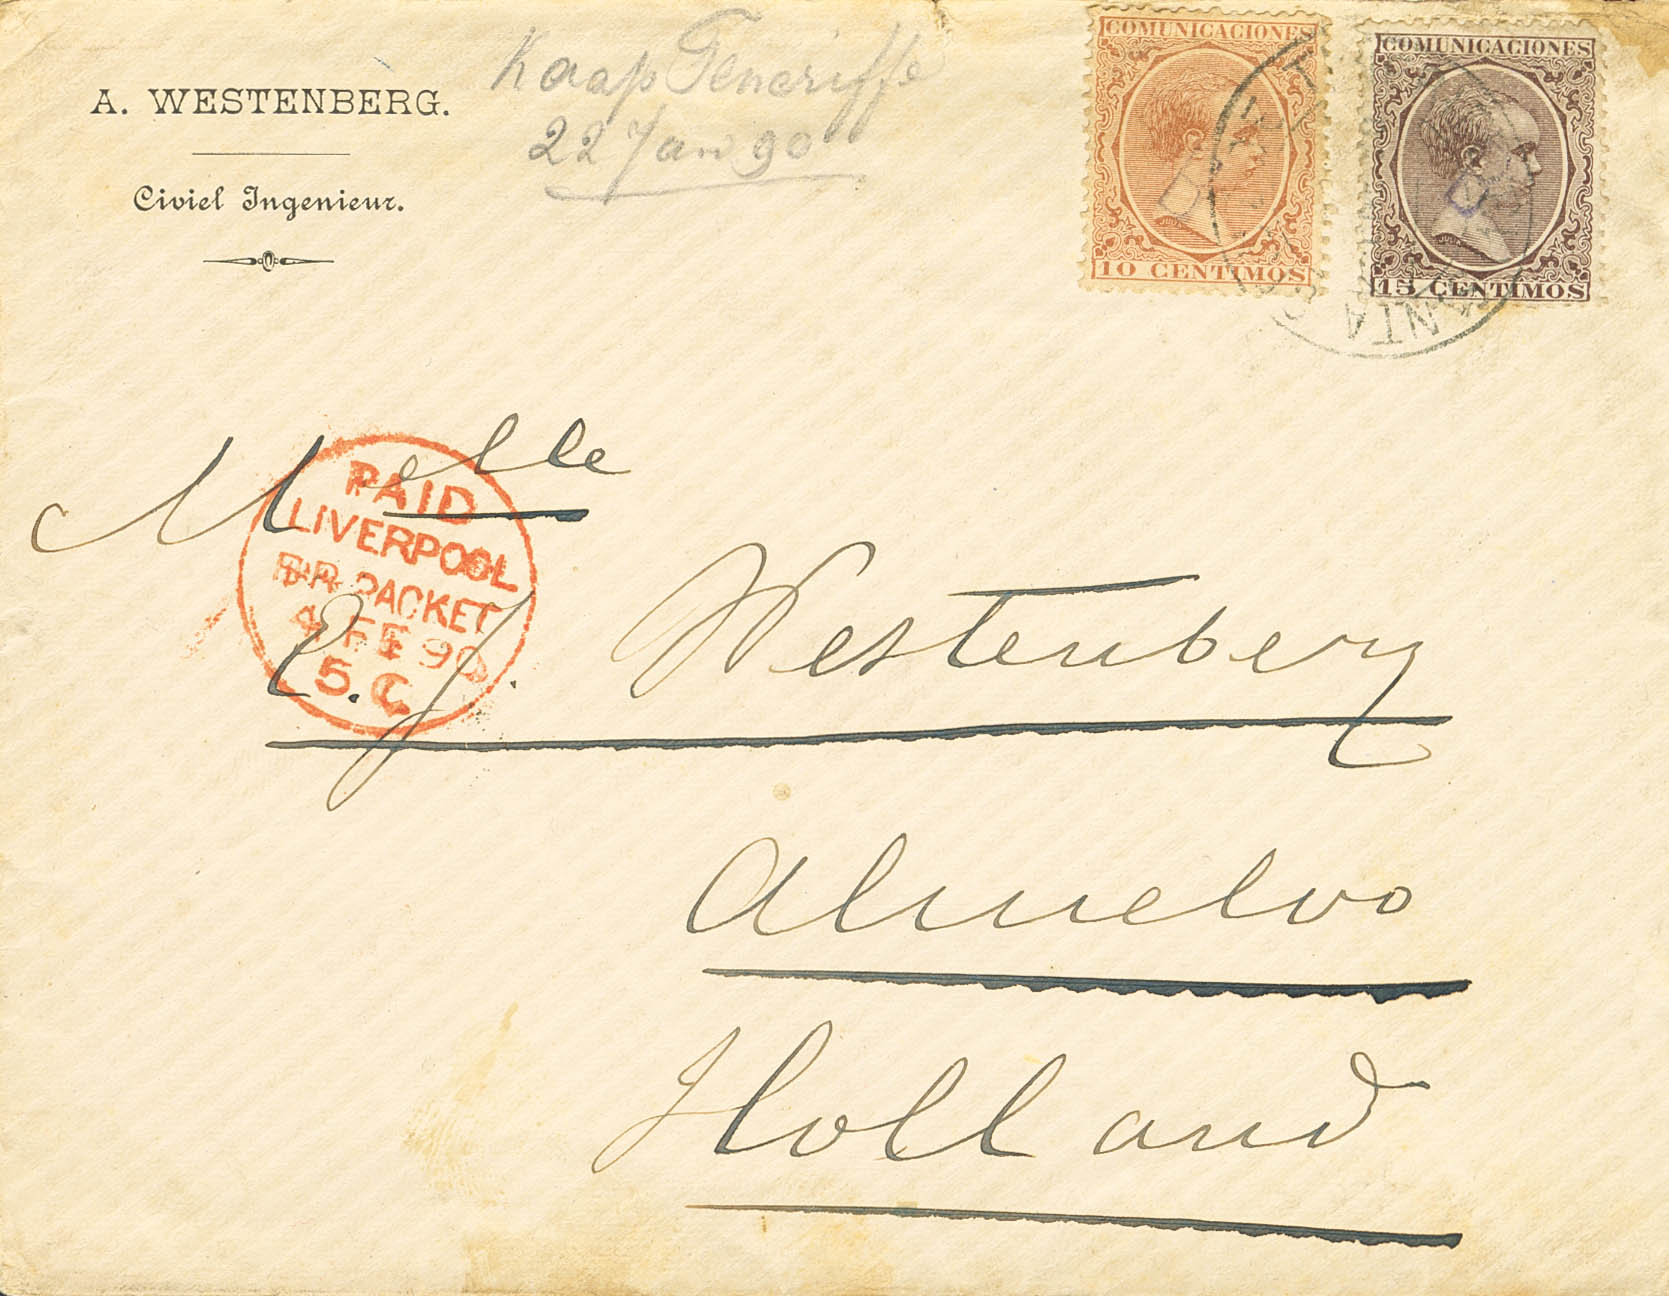 A. WESTENBERG.
Civiel Ingenieur.
Kaap Teneriffe
22 Jan 90
COMUNICACIONES
10 CENTIMOS
COMUNICACIONES
15 CENTIMOS
SANTA
PAID
LIVERPOOL
BR. PACKET
4 FE 90
5. C
Melle
E. J. Westenberg
Almelo
Holland